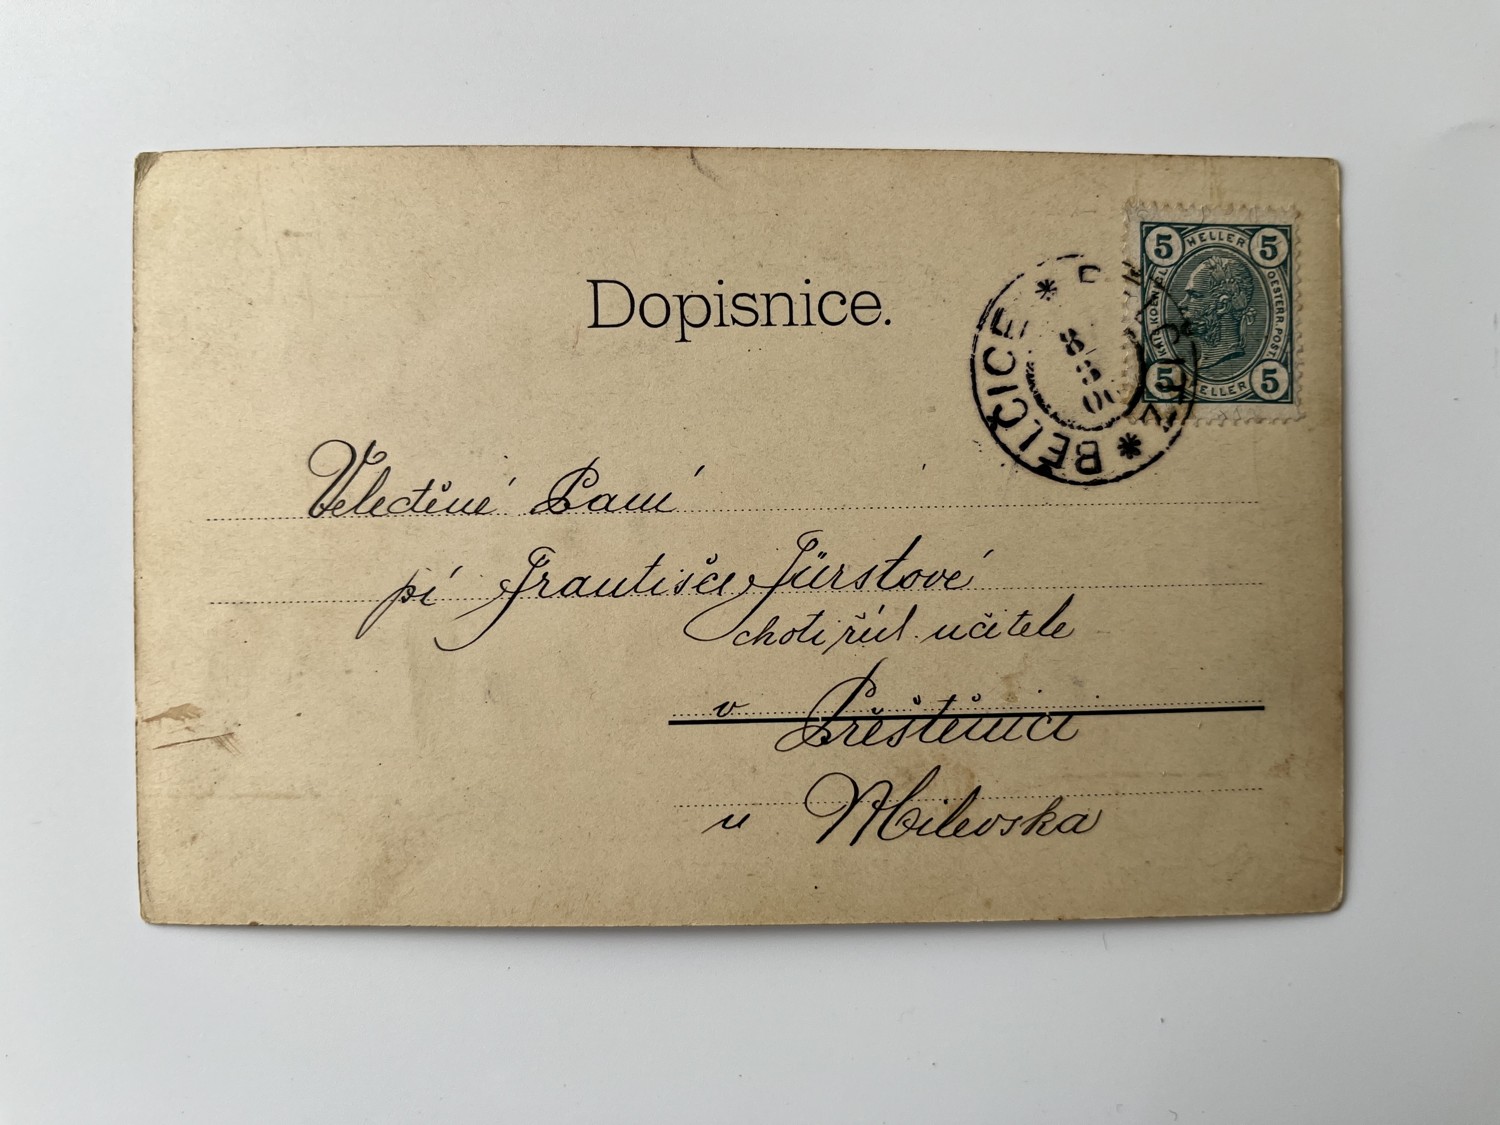 Dopisnice.
5 HELLER 5
KAIS. KOENIGL.
OESTERR. POST.
5 HELLER 5
BĚLČICE
8
3
Velectěné Paní
pí Františce Fürstové
choti říd. učitele
v Přeštěnici
u Milevska